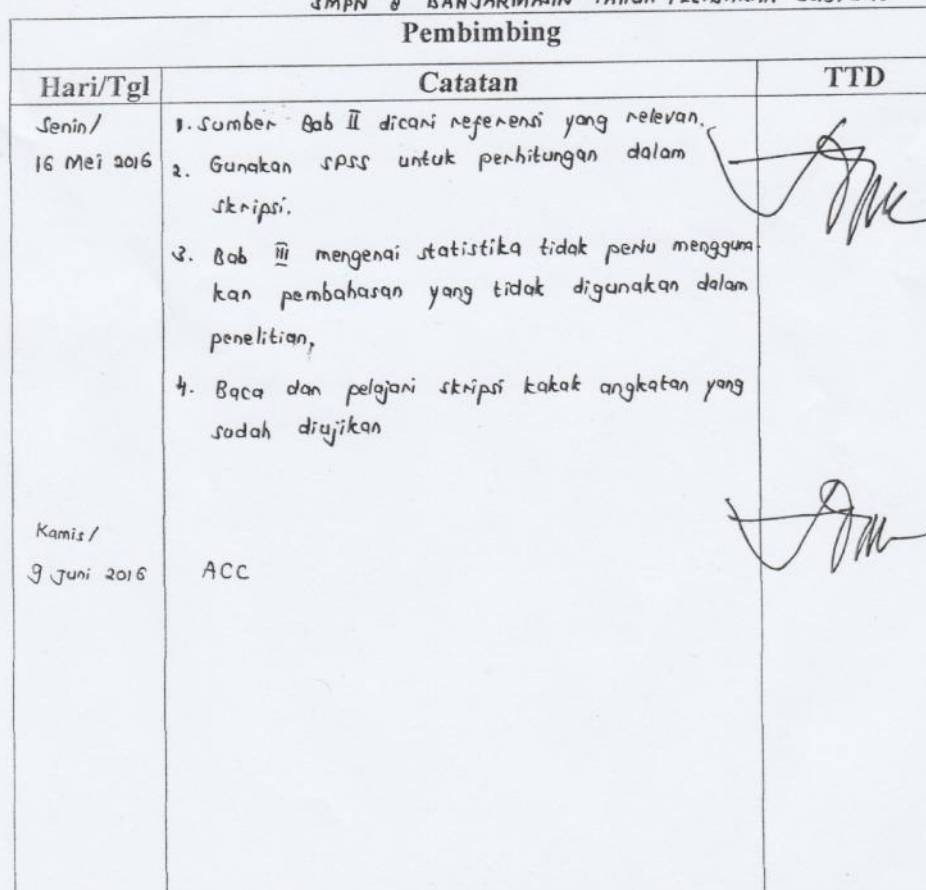 SMPN 8 BANJARMASIN TAHUN
Pembimbing
Hari/Tgl Catatan TTD
Senin/ 1. Sumber Bab II dicari referensi yang relevan.
16 Mei 2016 2. Gunakan SPSS untuk perhitungan dalam
skripsi.
3. Bab III mengenai statistika tidak perlu mengguna
kan pembahasan yang tidak digunakan dalam
penelitian,
4. Baca dan pelajari skripsi kakak angkatan yang
sudah diujikan
Kamis/
9 Juni 2016 ACC